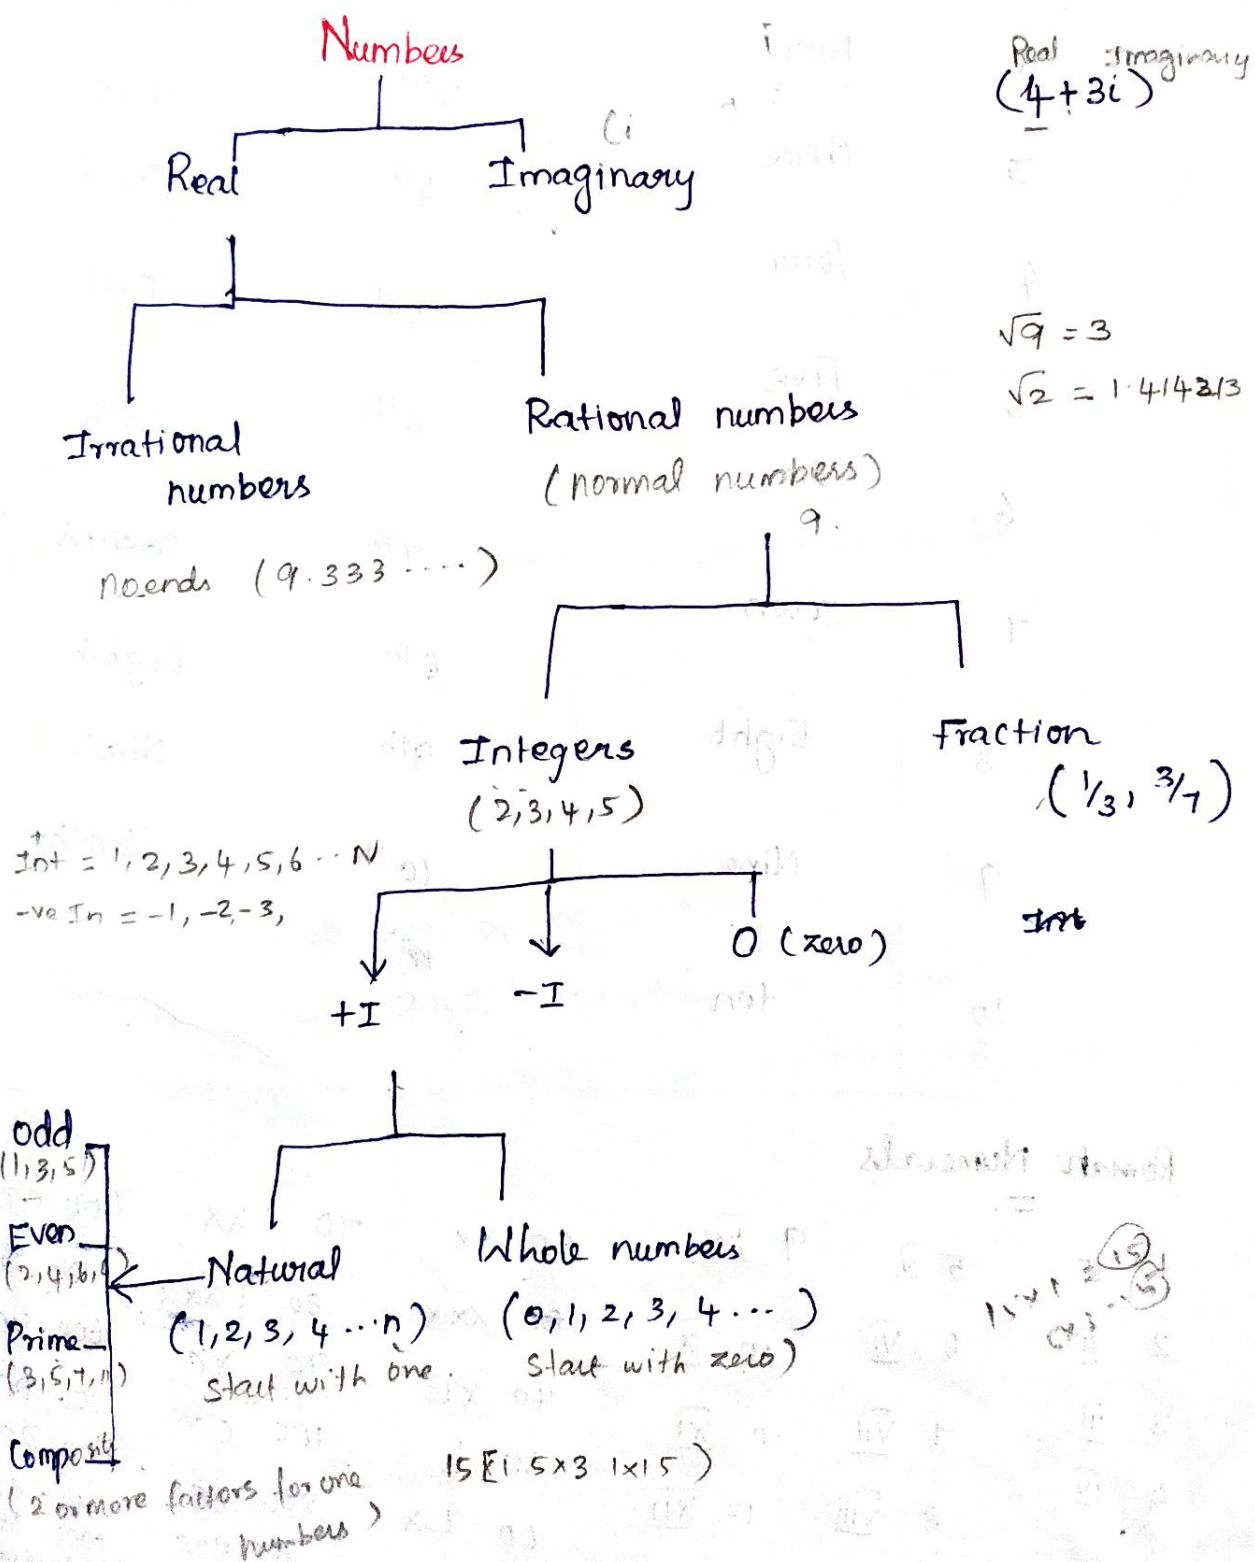 Numbers
Real Imaginary
(4+3i)
(i
Real
Imaginary
√9 = 3
√2 = 1.414213
Irrational
numbers
Rational numbers
(normal numbers)
9.
no ends (9.333 ....)
Integers
(2,3,4,5)
Fraction
(1/3, 3/7)
+
Int = 1, 2, 3, 4, 5, 6 ... N
-ve In = -1, -2, -3,
0 (zero)
Int
+I
-I
odd
(1,3,5)
Even
(2,4,6,
Prime
(3,5,7,11)
Composit
(2 or more factors for one
numbers)
Natural
(1, 2, 3, 4 ...n)
start with one.
Whole numbers
(0, 1, 2, 3, 4 ... )
start with zero)
15 [1 5x3 1x15 )